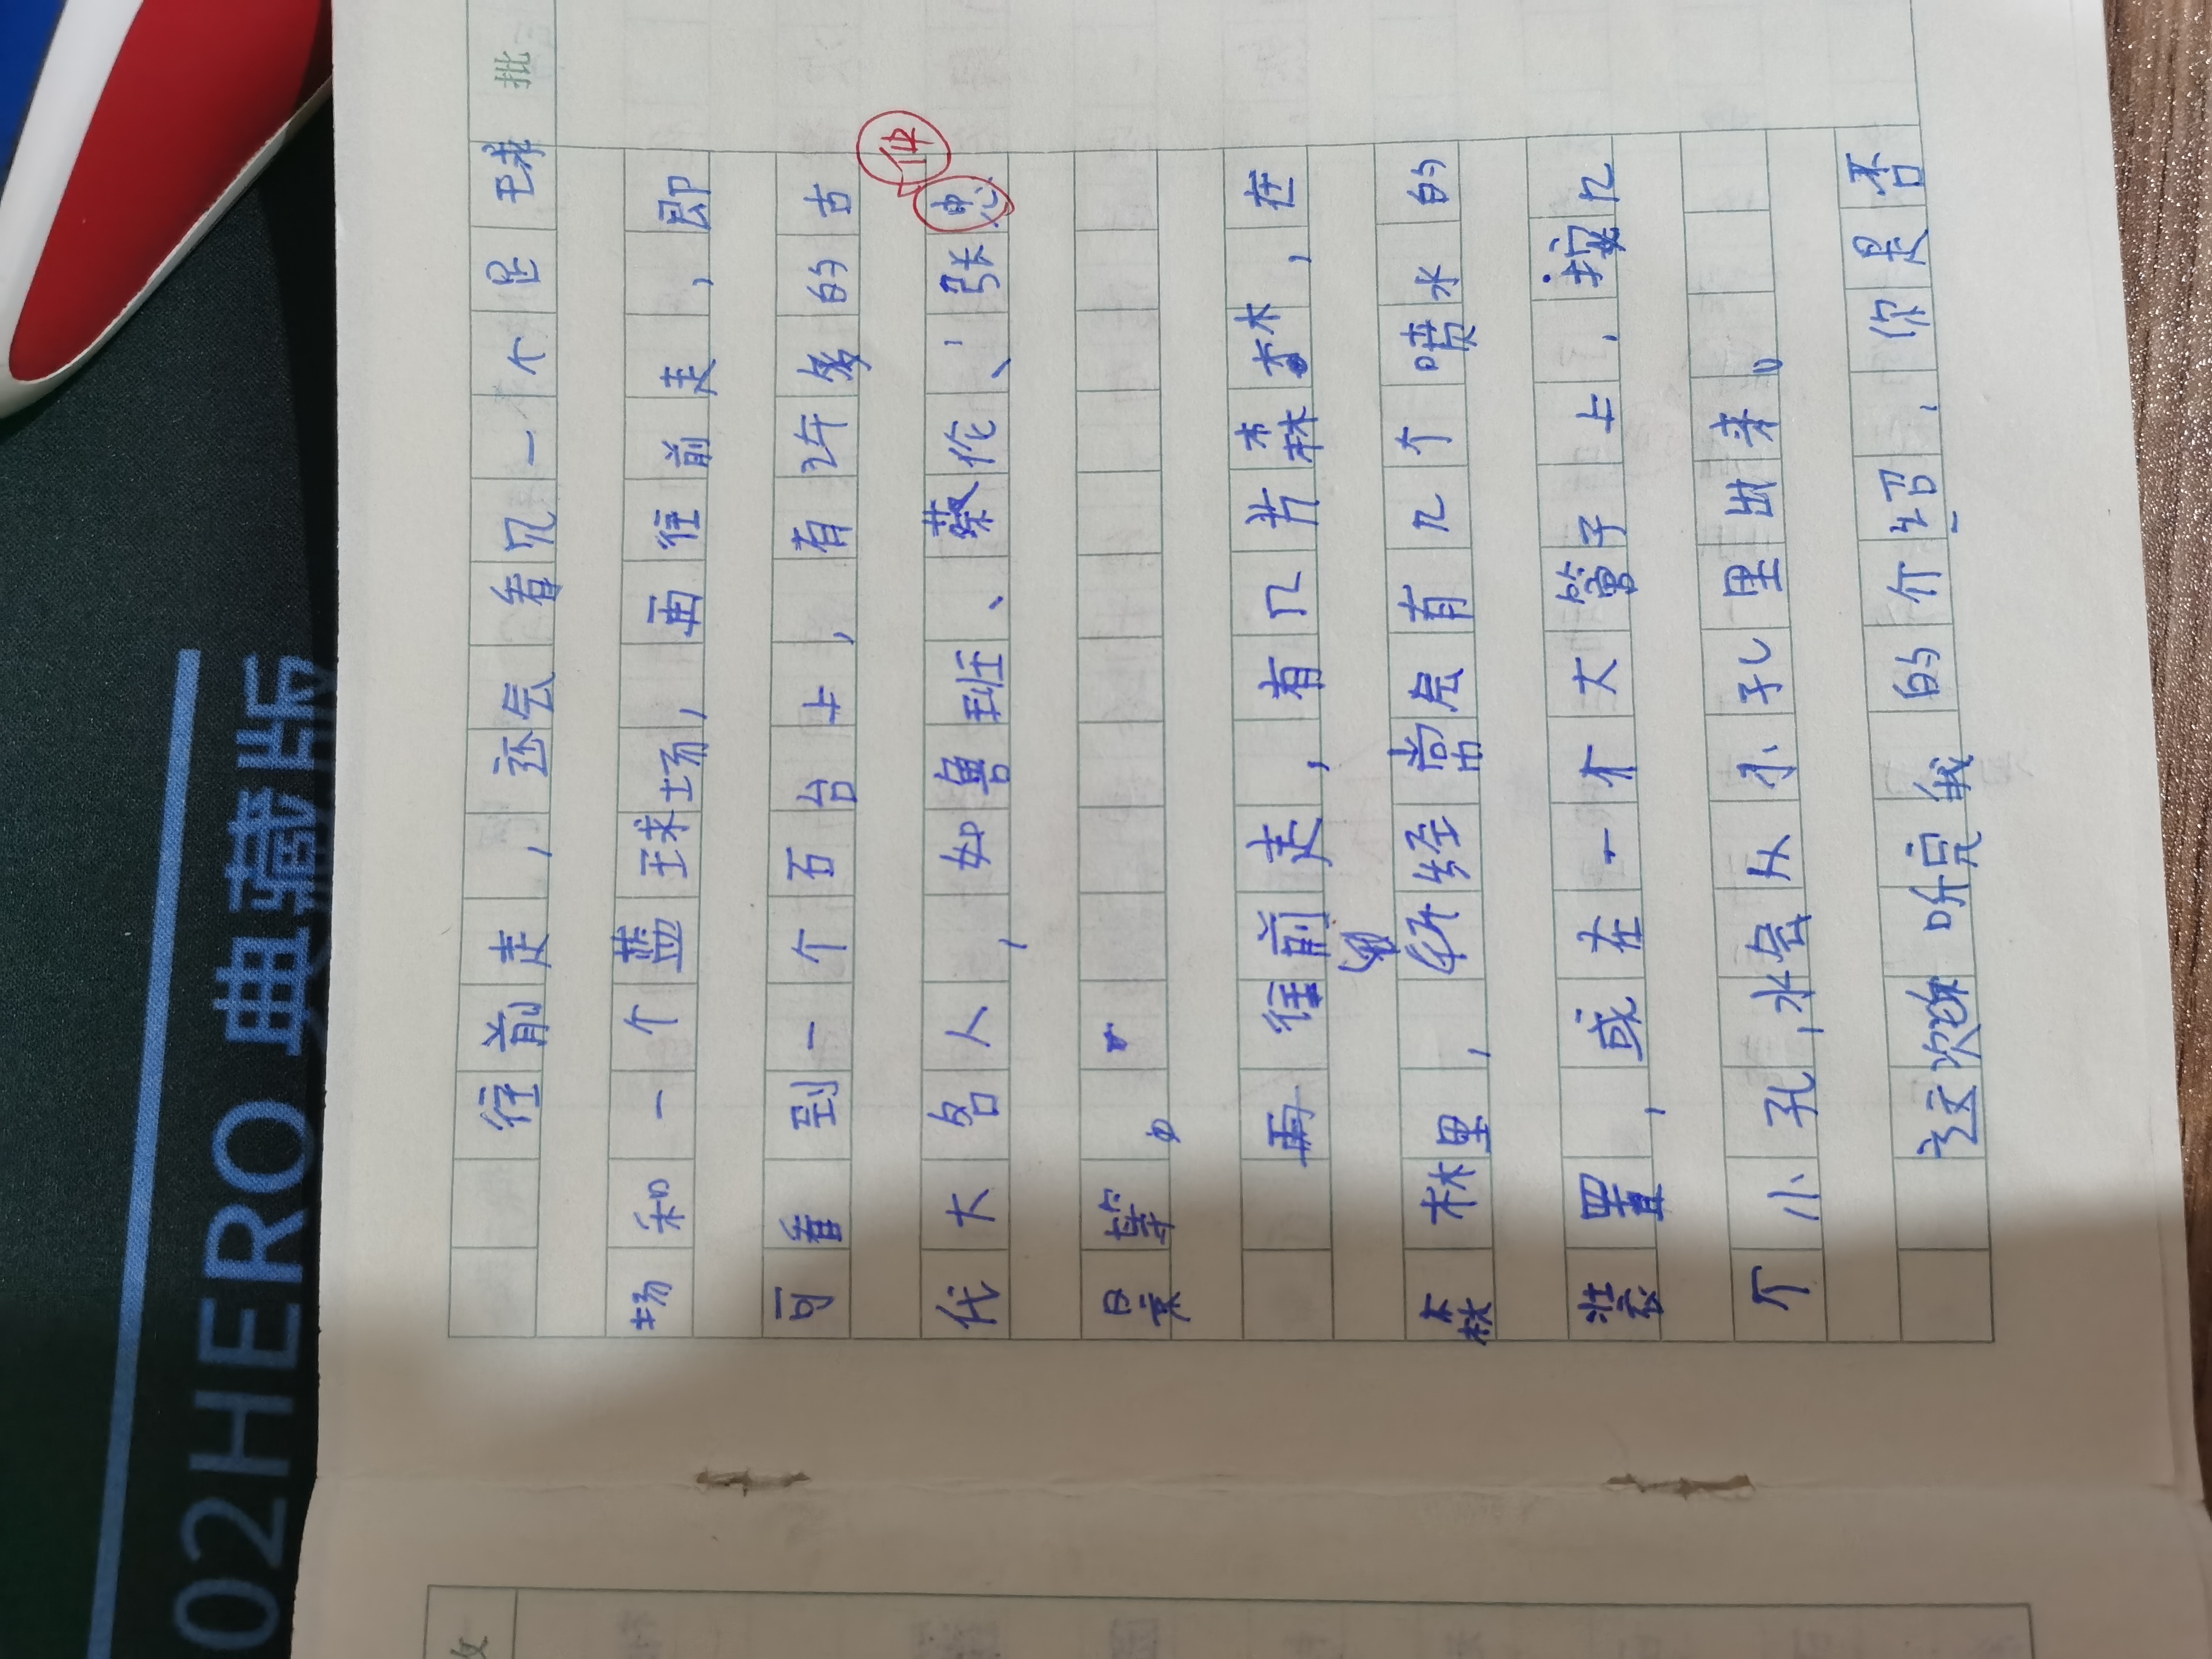 批
往前走，还会看见一个足球
场和一个蓝球场，再往前走，即
可看到一个石台上，有许多的古
仲
代大名人，如鲁班、蔡伦、张忠
景等。
再往前走，有几片森林，在
森林里，你经常会有几个喷水的
装置，或在一个大管子上，挖几
个小孔，水会从小孔里出来。
这次听完我的介绍，你是否
02HERO 典藏版